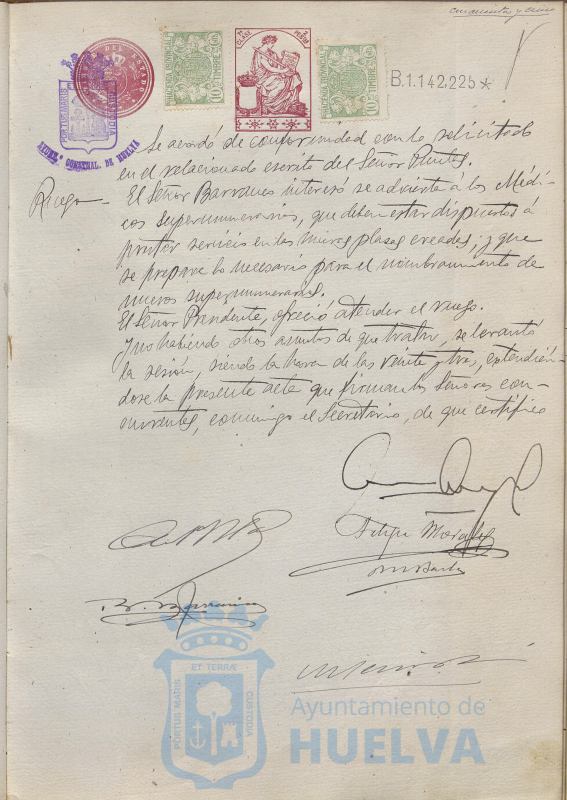 cincuenta y cinco
B.1.142,225*
TIMBRE
PORTUS MARIS
CUSTODIA
AYUNT.º CONSTNAL. DE HUELVA
Se acordó de conformidad con lo solicitado
en el relacionado escrito del Señor
Ruego—
El Señor Barranco interesó se advierta á los Médi-
cos supernumerarios, que deben estar dispuestos á
prestar servicio en las nuevas plazas creadas; y que
se prepare lo necesario para el nombramiento de
nuevos supernumerarios.
El Señor Presidente, ofreció atender el ruego.
Y no habiendo otros asuntos de que tratar, se levantó
la sesión, siendo la hora de las veinte y tres, extendién-
dose la presente acta que firman los Señores con-
currentes, conmigo el Secretario, de que certifico
Felipe Morales
ET TERRÆ
PORTUS MARIS
CUSTODIA
Ayuntamiento de
HUELVA